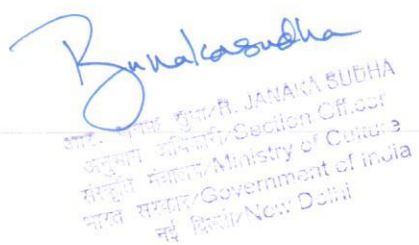 आर. जानक सुधा/R. JANAKA SUDHA
अनुभाग अधिकारी/Section Officer
संस्कृति मंत्रालय/Ministry of Culture
भारत सरकार/Government of India
नई दिल्ली/New Delhi